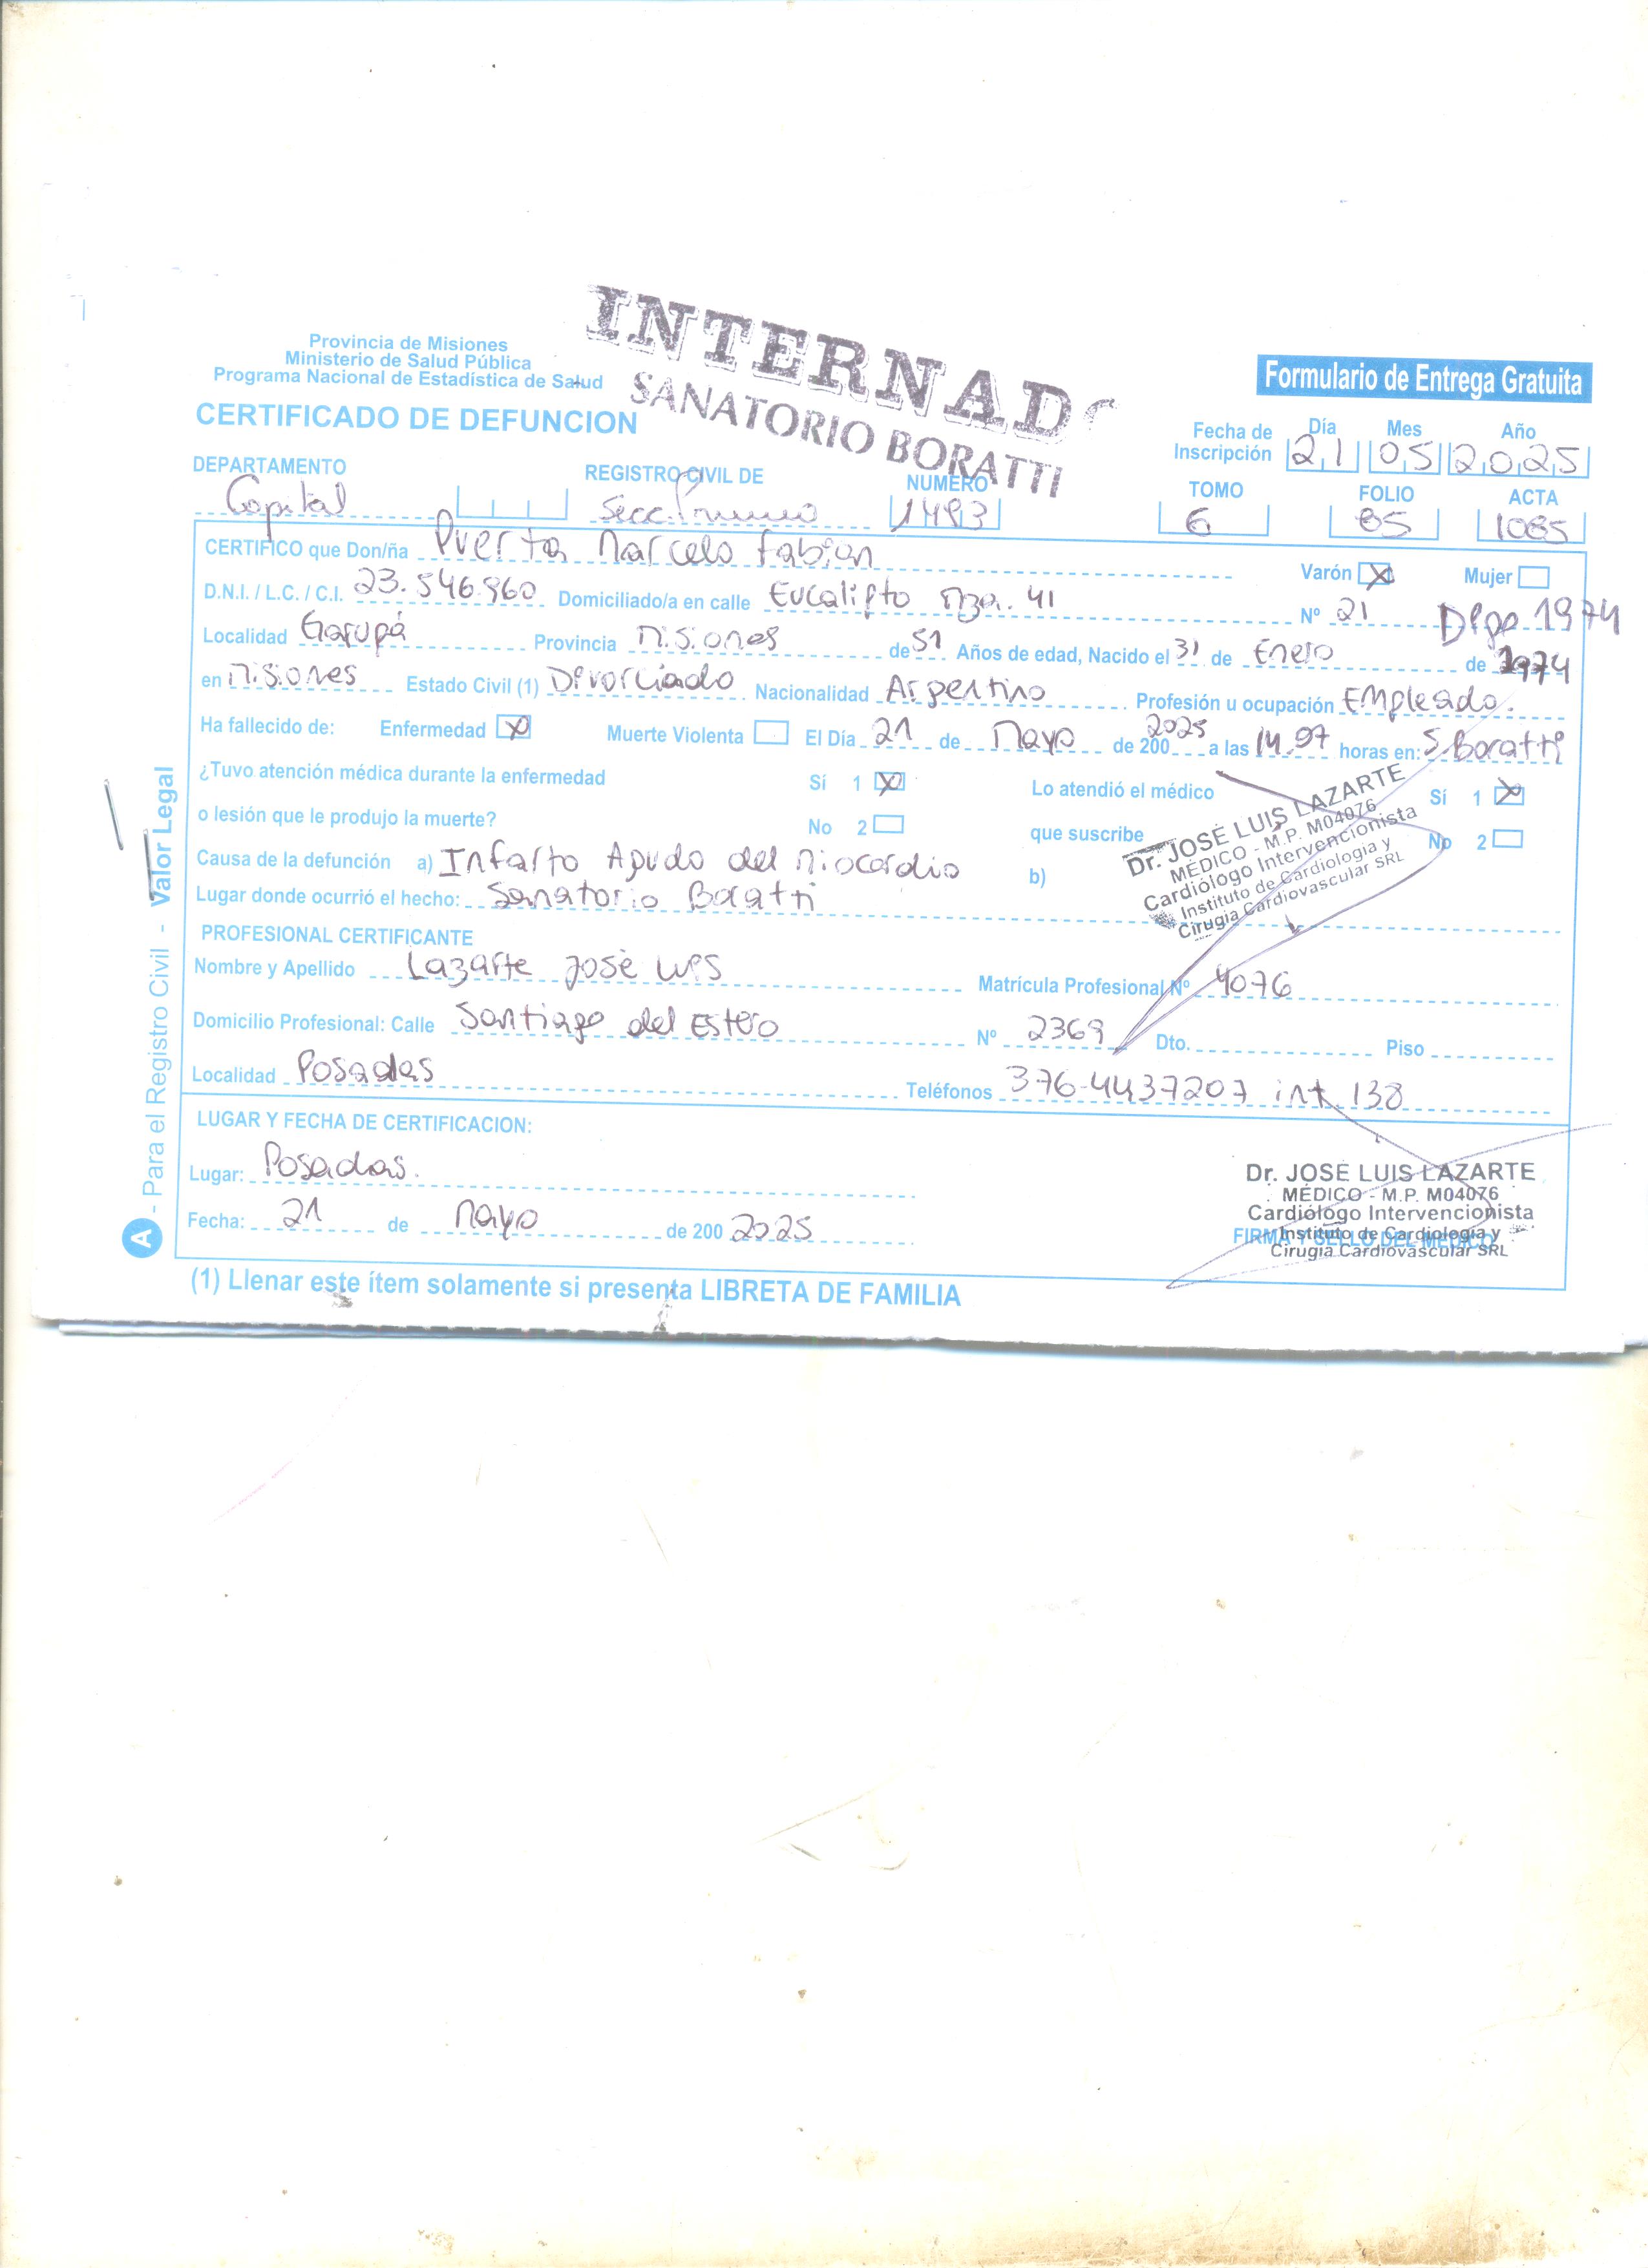 INTERNADO
SANATORIO BORATTI
Provincia de Misiones
Ministerio de Salud Pública
Programa Nacional de Estadística de Salud
Formulario de Entrega Gratuita
CERTIFICADO DE DEFUNCION
Fecha de Inscripción Día 21 Mes 05 Año 2025
DEPARTAMENTO REGISTRO CIVIL DE NUMERO TOMO FOLIO ACTA
Capital Secc. 1493 6 85 1085
CERTIFICO que Don/ña Puerta Marcelo Fabian Varón X Mujer
D.N.I. / L.C. / C.I. 23.546.960 Domiciliado/a en calle Eucalipto Mza. 41 Nº 21 1974
Localidad Garupá Provincia Misiones de 51 Años de edad, Nacido el 31 de Enero de 1974
en Misiones Estado Civil (1) Divorciado Nacionalidad Argentino Profesión u ocupación Empleado.
Ha fallecido de: Enfermedad X Muerte Violenta El Día 21 de Mayo de 200 2025 a las 14.07 horas en: S. Boratti
¿Tuvo atención médica durante la enfermedad Sí 1 X Lo atendió el médico Sí 1 X
o lesión que le produjo la muerte? No 2 que suscribe No 2
Dr. JOSÉ LUIS LAZARTE
MÉDICO - M.P. M04076
Cardiólogo Intervencionista
Instituto de Cardiología y
Cirugía Cardiovascular SRL
Causa de la defunción a) Infarto Agudo del Miocardio b)
Lugar donde ocurrió el hecho: Sanatorio Boratti
PROFESIONAL CERTIFICANTE
Nombre y Apellido Lazarte José Luis Matrícula Profesional Nº 4076
Domicilio Profesional: Calle Santiago del Estero Nº 2369 Dto. Piso
Localidad Posadas Teléfonos 376-4437207 int 138
LUGAR Y FECHA DE CERTIFICACION:
Lugar: Posadas.
Fecha: 21 de Mayo de 200 2025
Dr. JOSÉ LUIS LAZARTE
MÉDICO - M.P. M04076
Cardiólogo Intervencionista
Instituto de Cardiología y
Cirugía Cardiovascular SRL
FIRMA Y SELLO DEL MEDICO
(1) Llenar este ítem solamente si presenta LIBRETA DE FAMILIA
A - Para el Registro Civil - Valor Legal